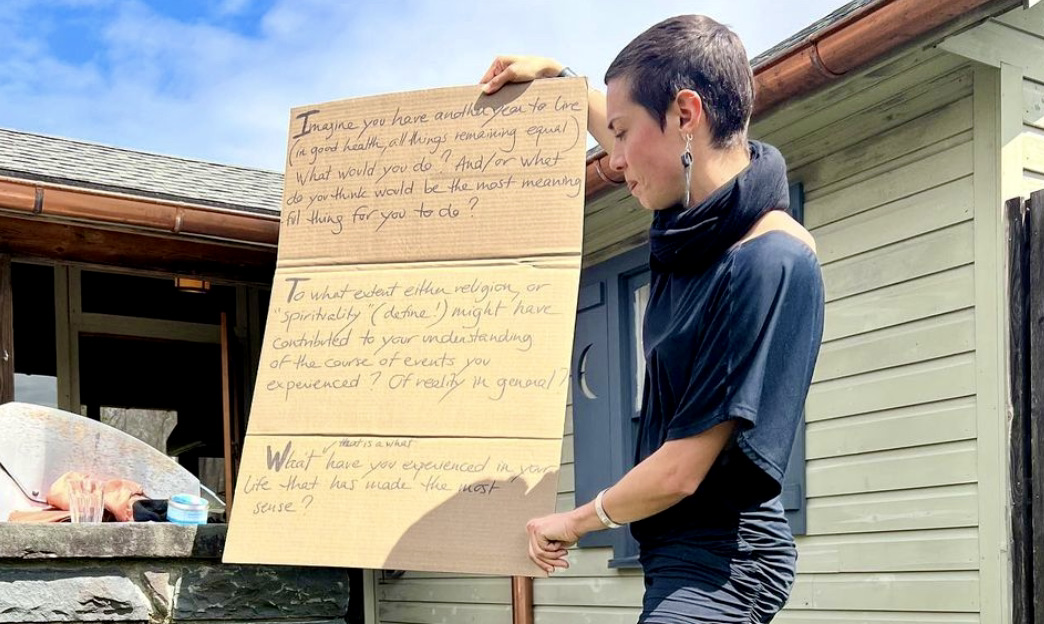 Imagine you have another year to live
(in good health, all things remaining equal)
What would you do? And/or what
do you think would be the most meaning
ful thing for you to do?
To what extent either religion, or
"spirituality" (define!) might have
contributed to your understanding
of the course of events you
experienced? Of reality in general?
that is a what
"What" have you experienced in your
life that has made the most
sense?